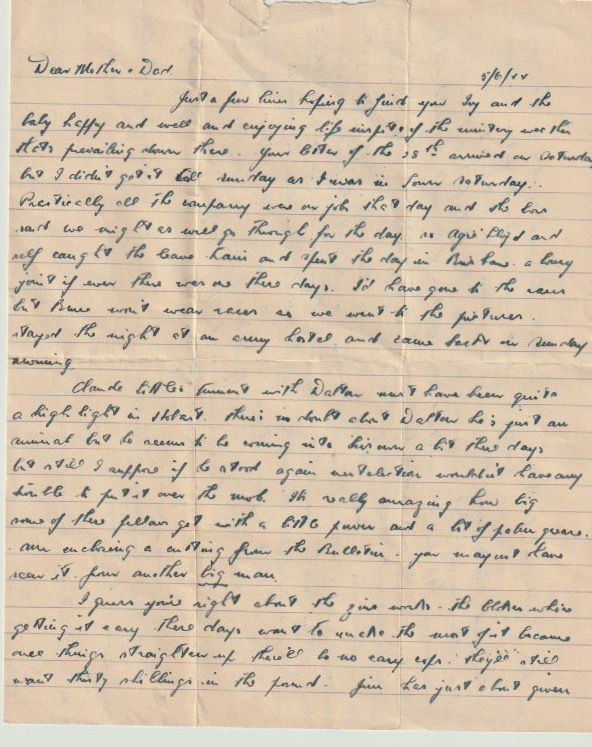 Dear Mother + Dad.
5/6/44
Just a few lines hoping to find you Ivy and the
baby happy and well and enjoying life inspite of the wintery weather
thats prevailing down there. Your letter of the 28th arrived on Saturday
but I didn't get it till Sunday as I was in town Saturday.
Practically all the company were on job that day and the boss
said we might as well go through for the day. so Lloyd and
self caught the leave train and spent the day in Brisbane. a lousy
joint if ever there was one these days. I'd have gone to the races
but Bruce won't wear races so we went to the pictures.
stayed the night at an army hostel and came back on Sunday
morning.
Claude with Dalton must have been quite
a high light in Hobart. there's no doubt about Dalton he's just an
animal but he seems to be coming into his own a bit these days
but still I suppose if he stood again next election wouldn't have any
trouble to put it over the mob. Its really amazing how big
some of these fellows get with a little power and a bit of palm grease.
am enclosing a cutting from the Bulletin. you may not have
seen it. from another big man.
I guess you're right about the zinc works. the blokes who're
getting it easy these days want to make the most of it because
once things straighten up there'll be no easy cops. they'll still
want thirty shillings in the pound. Jim has just about given